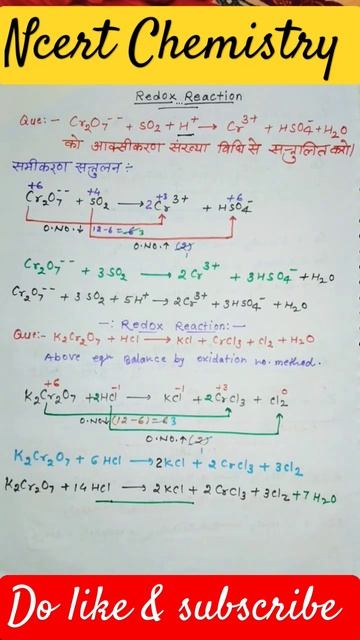 Ncert Chemistry
Redox Reaction
Que:- Cr₂O₇⁻⁻ + SO₂ + H⁺ → Cr³⁺ + HSO₄⁻ + H₂O
को आक्सीकरण संख्या विधि से सन्तुलित करो।
समीकरण सन्तुलन :-
+6 +4 +3 +6
Cr₂O₇⁻⁻ + SO₂ → 2Cr³⁺ + HSO₄⁻
O.NO.↓ 12-6=6 3
O.NO.↑ (2) 1
Cr₂O₇⁻⁻ + 3SO₂ → 2Cr³⁺ + 3HSO₄⁻ + H₂O
Cr₂O₇⁻⁻ + 3SO₂ + 5H⁺ → 2Cr³⁺ + 3HSO₄⁻ + H₂O
-: Redox Reaction:-
Que:- K₂Cr₂O₇ + HCl → KCl + CrCl₃ + Cl₂ + H₂O
Above eqn Balance by oxidation no. method.
+6 -1 -1 +3 0
K₂Cr₂O₇ + 2HCl → KCl + 2CrCl₃ + Cl₂
O.NO↓ (12-6)=63
O.NO.↑(2) 1
K₂Cr₂O₇ + 6HCl → 2KCl + 2CrCl₃ + 3Cl₂
K₂Cr₂O₇ + 14HCl → 2KCl + 2CrCl₃ + 3Cl₂ + 7H₂O
Do like & subscribe